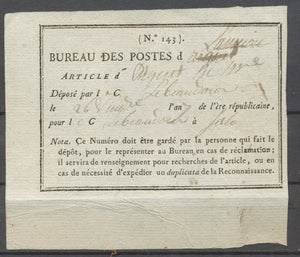 (N.º 143).
BUREAU DES POSTES d
ARTICLE d'
Déposé par l C
le 26 l'an 7 de l'ère républicaine,
pour l C à
Nota. Ce Numéro doit être gardé par la personne qui fait le
dépôt, pour le représenter au Bureau en cas de réclamation;
il servira de renseignement pour recherches de l'article, ou en
cas de nécessité d'expédier un duplicata de la Reconnaissance.